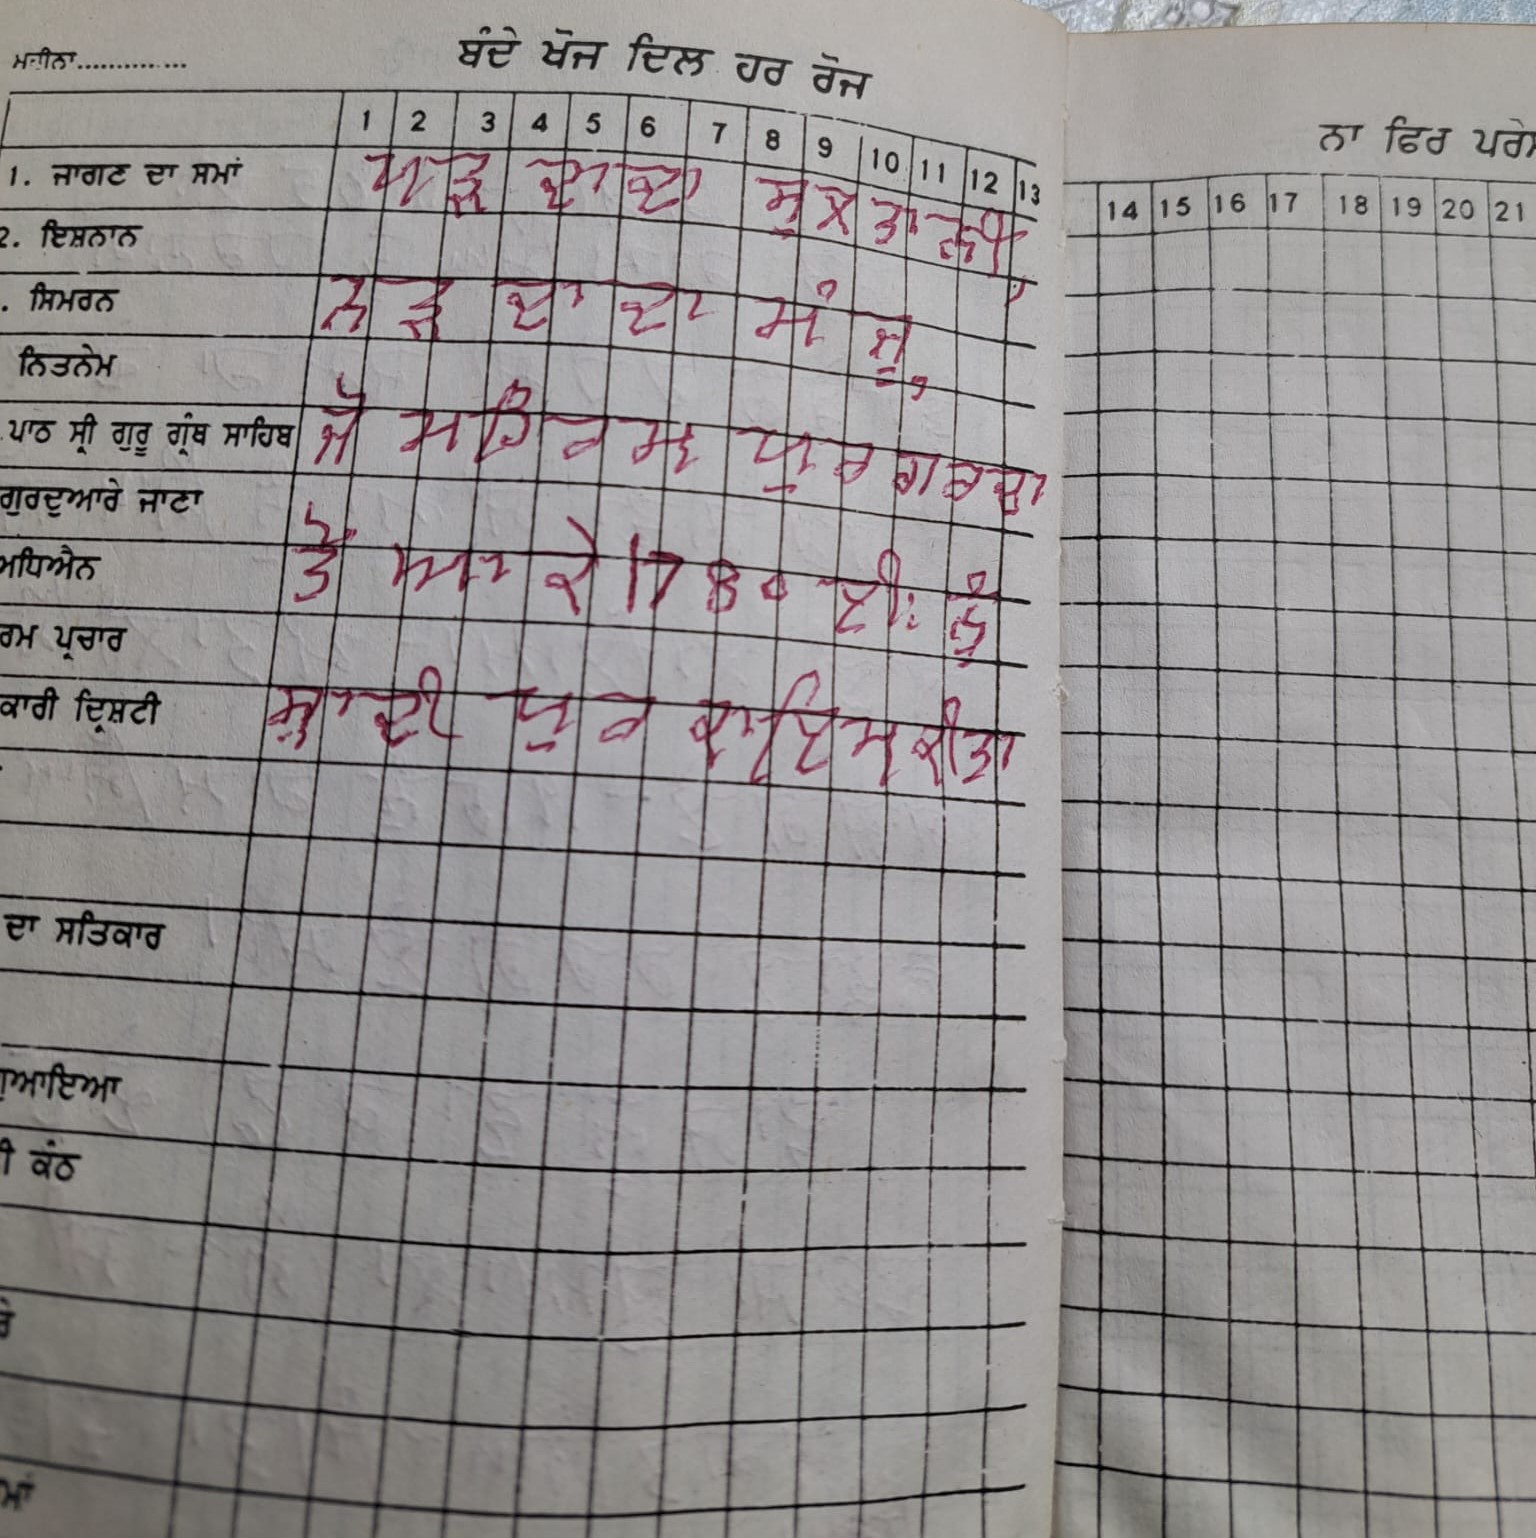 ਮਹੀਨਾ.............
ਬੰਦੇ ਖੋਜ ਦਿਲ ਹਰ ਰੋਜ
ਨਾ ਫਿਰ ਪਰੇ
1 2 3 4 5 6 7 8 9 10 11 12 13
14 15 16 17 18 19 20 21
1. ਜਾਗਣ ਦਾ ਸਮਾਂ
ਪੜ ਦਾਦਾ ਸੁਲਤਾਨੀ
2. ਇਸ਼ਨਾਨ
. ਸਿਮਰਨ
ਨੜ ਦਾਦਾ ਮੰਜੂ
ਨਿਤਨੇਮ
ਪਾਠ ਸ੍ਰੀ ਗੁਰੂ ਗ੍ਰੰਥ ਸਾਹਿਬ
ਜੋ ਮਹਿਰਮ ਪੁਰ
ਗੁਰਦੁਆਰੇ ਜਾਣਾ
ਅਧਿਐਨ
ਤੋਂ ਆਕੇ 1780 ਈ: ਨੂੰ
ਰਮ ਪ੍ਰਚਾਰ
ਕਾਰੀ ਦ੍ਰਿਸ਼ਟੀ
ਪੁਰ ਕਾਇਮ ਕੀਤਾ
ਦਾ ਸਤਿਕਾਰ
ਗੁਆਇਆ
ੀ ਕੰਠ